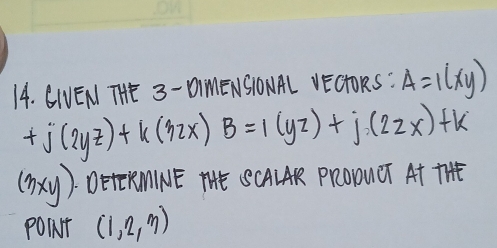 14. GIVEN THE 3-DIMENSIONAL VECTORS: A = i(xy)
+ j(2yz) + k(3zx) B = i(yz) + j(2zx) + k
(3xy). DETERMINE THE SCALAR PRODUCT AT THE
POINT (1,2,3)